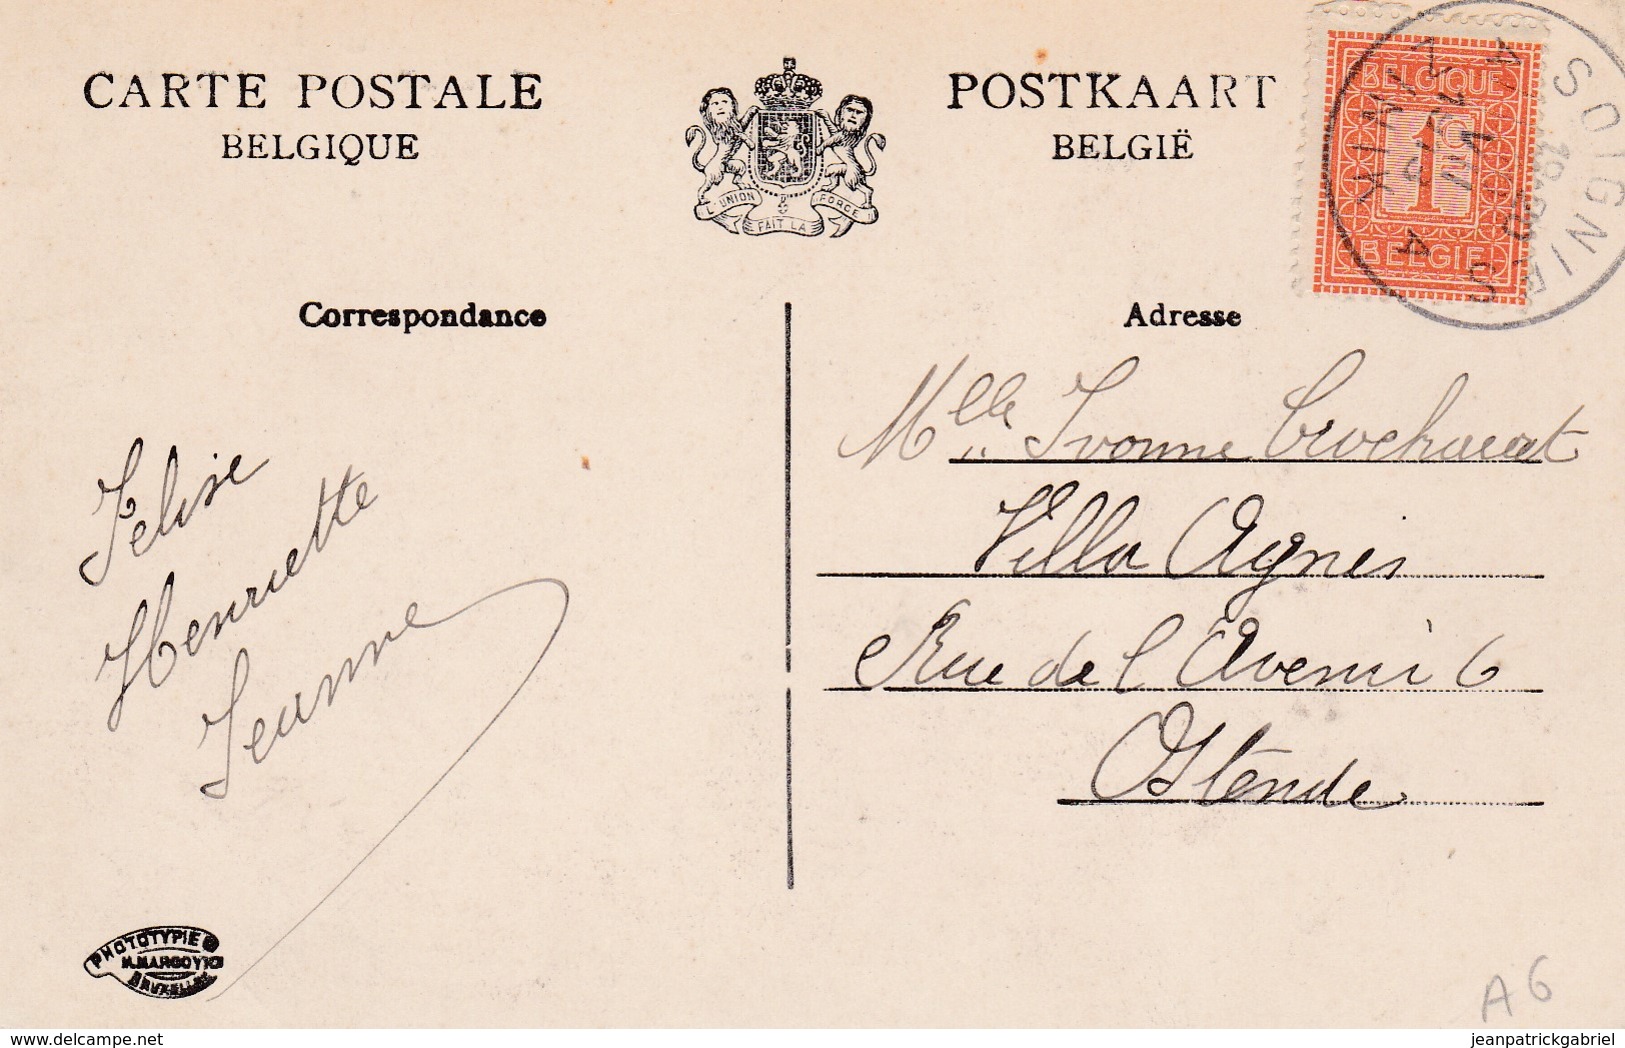 CARTE POSTALE
BELGIQUE
POSTKAART
BELGIË
L'UNION FAIT LA FORCE
BELGIQUE
1c
BELGIE
SOIGNIES
Correspondance
Adresse
Mlle Yvonne
Villa Agnès
Rue de l'Avenir 6
Ostende
Félise
Henriette
Jeanne
PHOTOTYPIE
M.MARCOVICI
BRUXELLES
A6
www.delcampe.net
jeanpatrickgabriel